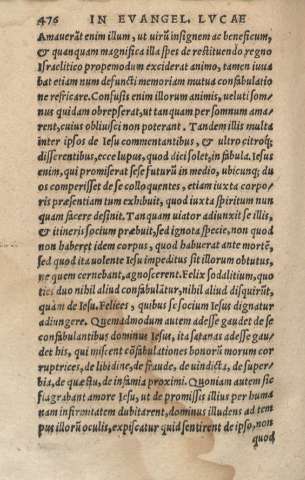 476 IN EVANGEL. LVCAE
Amauerāt enim illum, ut uirū insignem ac beneficum,
& quanquam magnifica illa spes de restituendo regno
Israelitico propemodum exciderat animo, tamen iuua
bat etiam nunc defuncti memoriam mutua confabulatio
ne refricare. Confusis enim illorum animis, ueluti som/
nus quidam obrepserat, ut tanquam per somnum ama/
rent, cuius obliuisci non poterant. Tandem illis multa
inter ipsos de Iesu commentantibus, & ultro citroq;
disserentibus, ecce lupus, quod dici solet, in fabula. Iesus
enim, qui promiserat sese futurū in medio, ubicunq; du
os comperisset de se colloquentes, etiam iuxta corpo/
ris præsentiam tum exhibuit, quod iuxta spiritum nun
quam facere desinit. Tanquam uiator adiunxit se illis,
& itineris socium præbuit, sed ignota specie, non quod
non haberet idem corpus, quod habuerat ante mortē,
sed quod ita uolente Iesu impeditus sit illorum obtutus,
ne quem cernebant, agnoscerent. Felix sodalitium, quo
ties duo nihil aliud confabulātur, nihil aliud disquirūt,
quàm de Iesu. Felices, quibus se socium Iesus dignatur
adiungere. Quemadmodum autem adesse gaudet de se
confabulantibus dominus Iesus, ita satanas adesse gau/
det his, qui miscent cōfabulationes bonorū morum cor
ruptrices, de libidine, de fraude, de uindicta, de super/
bia, de quæstu, de infamia proximi. Quoniam autem sic
flagrabant amore Iesu, ut de promissis illius per huma
nam infirmitatem dubitarent, dominus illudens ad tem
pus illorū oculis, expiscatur quid sentirent de ipso, non
quod